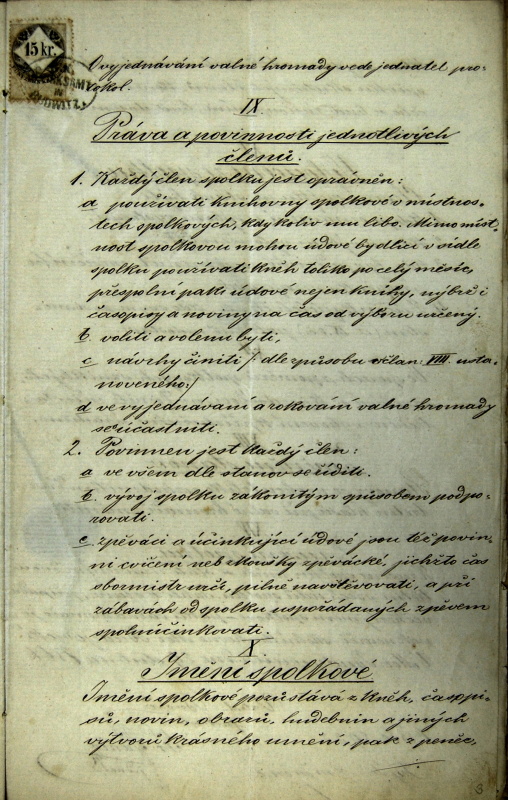 15 kr.
O vyjednávání valné hromady vede jednatel pro-
tokol.
IX
Práva a povinnosti jednotlivých
členů.
1. Každý člen spolku jest oprávněn:
a používati knihovny spolkové v místnos-
tech spolkových, kdykoliv mu libo. Mimo míst-
nost spolkovou mohou údové bydlící v sídle
spolku používati kněh toliko po celý měsíc,
přespolní pak údové nejen knihy, nýbrž i
časopisy a noviny na čas od výboru určený.
b. voliti a volenu býti,
c návrhy činiti /: dle způsobu v člán. VIII. usta-
noveného:/
d ve vyjednávaní a rokování valné hromady
se účastniti.
2. Povinnen jest každý člen:
a ve všem dle stanov se říditi.
b. vývoj spolku zákonitým spůsobem podpo-
rovati.
c zpěváci a účinkující údové jsou též povin-
ni cvičení neb zkoušky zpěvácké, jichžto čas
sbormistr určí, pilně navštěvovati, a při
zábavách od spolku uspořádaných zpěvem
spoluúčinkovati.
X
Jmění spolkové
Jmění spolkové pozůstává z kněh, časopi-
sů, novin, obrazů, hudebnin a jiných
výtvorů krásného umění, pak z peněz,
3